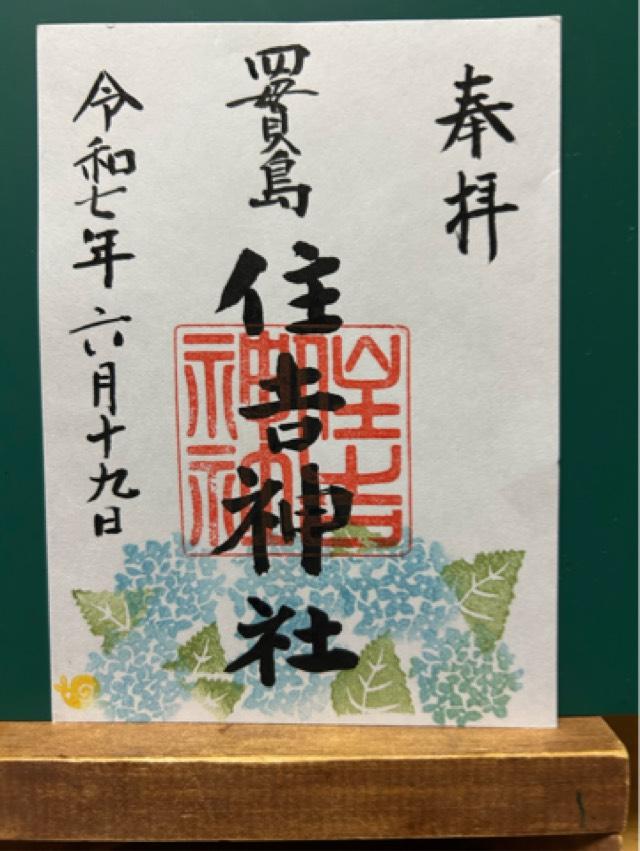 奉拝
四貫島
住吉神社
令和七年六月十九日